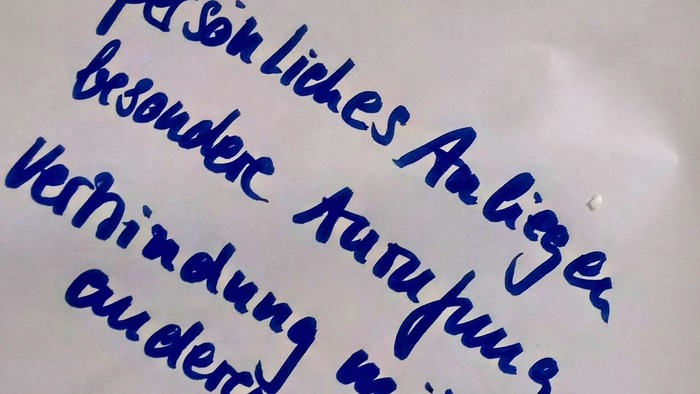 persönliches Anliegen
besondere Anrufung
Verbindung
andere